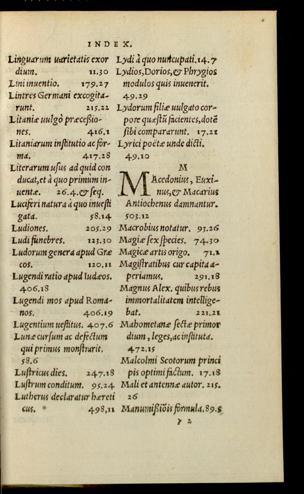 INDEX.
Linguarum uarietatis exor
dium. 11.30
Lini inuentio. 179.27
Lintres Germani excogita-
runt. 215.22
Litaniæ uulgò præcesio-
nes. 416.1
Litaniarum institutio ac for-
ma. 417.28
Literarum usus ad quid con
ducat, et à quo primum in-
uentæ. 26.4. & seq.
Luciferi natura à quo inuesti
gata. 58.14
Ludiones. 205.29
Ludi funebres. 123.10
Ludorum genera apud Græ
cos. 120.11
Lugendi ratio apud Iudæos.
406.18
Lugendi mos apud Roma-
nos. 406.19
Lugentium uestitus. 407.6
Lunæ cursum ac defectum
qui primus monstrarit.
58.6
Lustricus dies. 247.18
Lustrum conditum. 95.24
Lutherus declaratur hæreti
cus. 498.11
Lydi à quo nuncupati. 14.7
Lydios, Dorios, & Phrygios
modulos quis inuenerit.
49.29
Lydorum filiæ uulgato cor-
pore quæstū facientes, dotē
sibi compararunt. 17.21
Lyrici poëtæ unde dicti.
49.10
M
MAcedonius, Euxi-
nus, & Macarius
Antiochenus damnantur.
503.12
Macrobius notatur. 93.26
Magiæ sex species. 74.30
Magicæ artis origo. 71.2
Magistratibus cur capita a-
periamus. 291.18
Magnus Alex. quibus rebus
immortalitatem intellige-
bat. 221.21
Mahometanæ sectæ primor
dium, leges, ac instituta.
472.15
Malcolmi Scotorum princi
pis optimi factum. 17.18
Mali et antennæ autor. 215.
26
Manumissiōis formula. 89.5
y 2